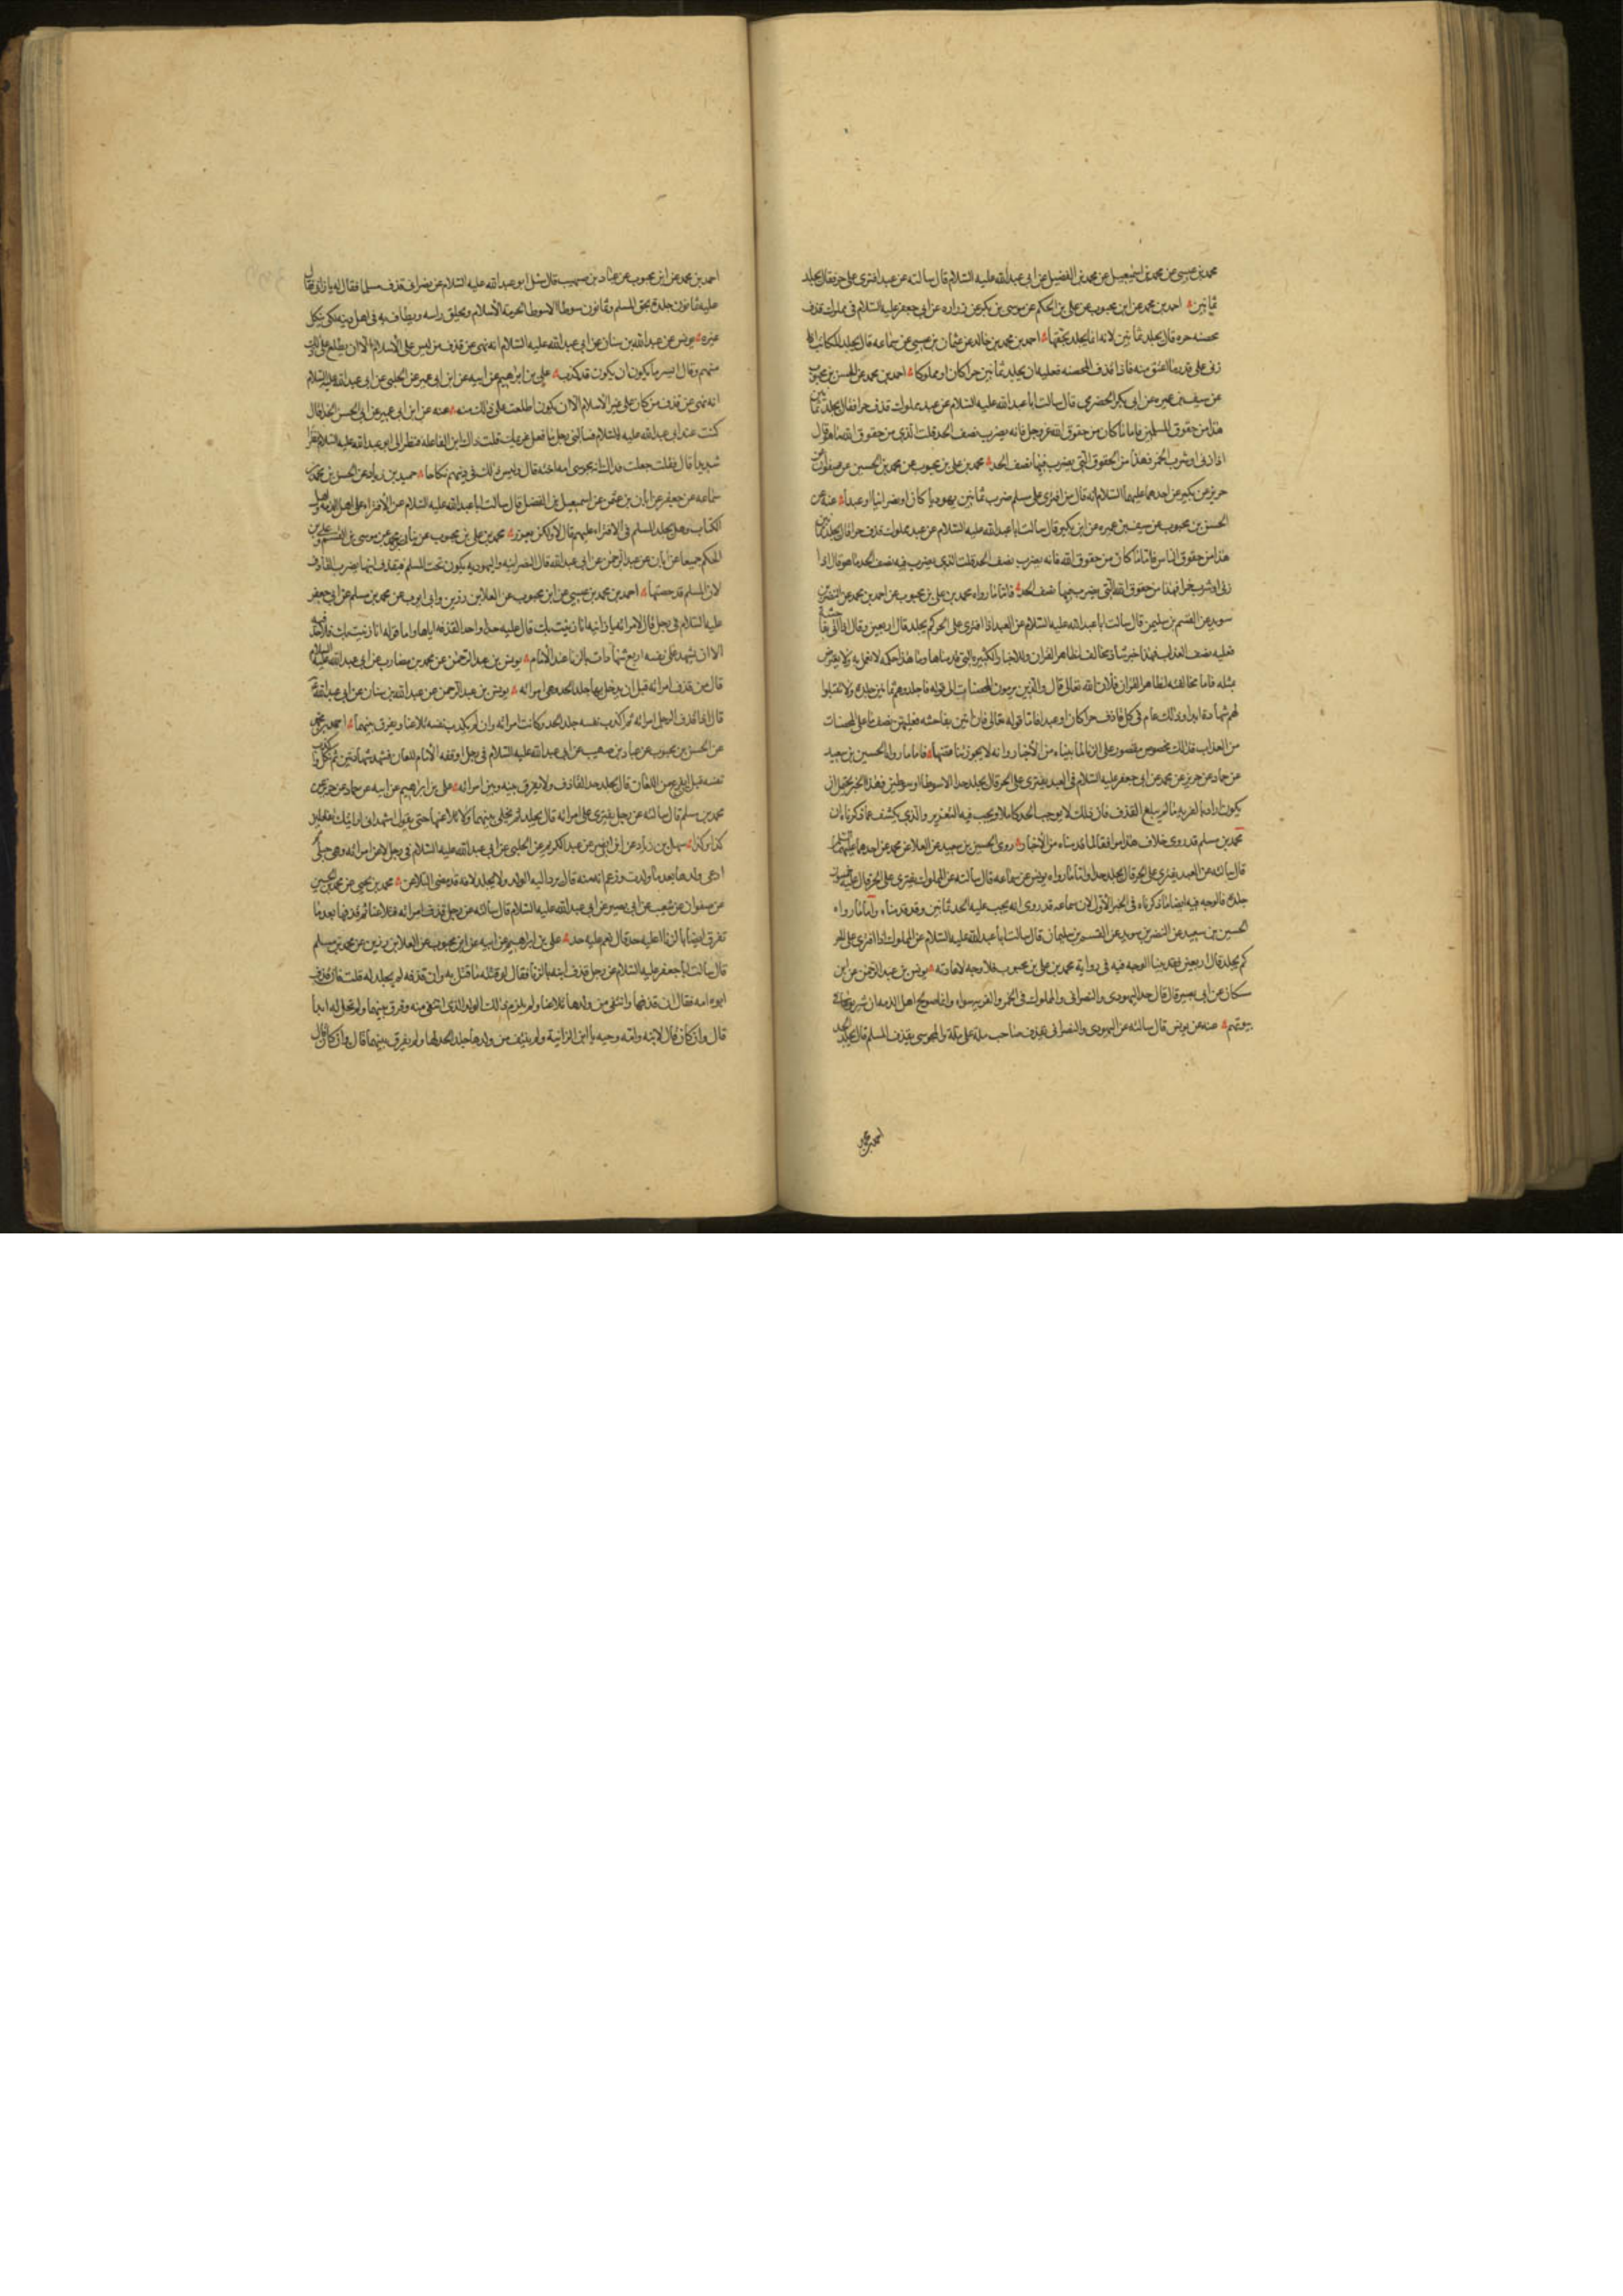 محمد بن عيسى عن محمد بن اسمعيل عن محمد بن الفضيل عن ابي عبدالله عليه السلام قال سالته عن عبد افترى على حر فقال يجلد
ثمانين احمد بن محمد عن ابن محبوب عن علي بن الحكم عن موسى بن بكر عن زراره عن ابي جعفر عليه السلام في مملوك قذف
محصنه حره قال يجلد ثمانين لانه انما يجلد بحقها احمد بن محمد بن خالد عن عثمان بن عيسى عن سماعه قال يجلد المكاتب اذا
زنى على قدر ما اعتق منه فاذا قذف المحصنه فعليه ان يجلد ثمانين حرا كان او مملوكا احمد بن محمد عن الحسن بن محبوب
عن سيف بن عميره عن ابي بكر الحضرمي قال سالت ابا عبدالله عليه السلام عن عبد مملوك قذف حرا فقال يجلد ثمانين
هذا من حقوق المسلمين فاما ما كان من حقوق الله عز وجل فانه يضرب نصف الحد قلت الذي من حقوق الله ما هو قال
اذا زنى او شرب الخمر فهذا من الحقوق التي يضرب فيها نصف الحد محمد بن علي بن محبوب عن محمد بن الحسين عن صفوان عن
حريز عن بكير عن احدهما عليهما السلام انه قال من افترى على مسلم ضرب ثمانين يهوديا كان او نصرانيا او عبدا عنه عن
الحسن بن محبوب عن سيف بن عميره عن ابن بكير قال سالت ابا عبدالله عليه السلام عن عبد مملوك قذف حرا قال يجلد ثمانين
هذا من حقوق الناس فاما ما كان من حقوق الله فانه يضرب نصف الحد قلت الذي يضرب فيه نصف الحد ما هو قال اذا
زنى او شرب خمرا فهذا من حقوق الله التي يضرب فيها نصف الحد فاما ما رواه محمد بن علي بن محبوب عن احمد بن محمد عن النضر بن
سويد عن القسم بن سليمن قال سالت ابا عبدالله عليه السلام عن العبد اذا افترى على الحر كم يجلد قال اربعين وقال اذا اتى بفاحشة
فعليه نصف العذاب فهذا خبر شاذ مخالف لظاهر القران وللاخبار الكثيره التي قدمناها وما هذا حكمه لا نعمل به ولا يعترض
بمثله فاما مخالفته لظاهر القران فلان الله تعالى قال والذين يرمون المحصنات الى قوله فاجلدوهم ثمانين جلدة ولا تقبلوا
لهم شهادة ابدا وذلك عام في كل قاذف حرا كان او عبدا فاما قوله تعالى فان اتين بفاحشه فعليهن نصف ما على المحصنات
من العذاب فذلك مخصوص مقصور على الزنا لما بيناه من الاخبار وانه لا يجوز تناقضها فاما ما رواه الحسين بن سعيد
عن حماد عن حريز عن محمد عن ابي جعفر عليه السلام في العبد يفترى على الحر قال يجلد حدا الا سوطا او سوطين فهذا الخبر يحتمل ان
محمد بن مسلم قد روى خلاف هذا موافقا لما قدمناه من الاخبار روى الحسين بن سعيد عن العلا عن محمد عن احدهما عليهما السلام
قال سالته عن العبد يفترى على الحر قال يجلد حدا واما ما رواه يونس عن سماعه قال سالته عن المملوك يفترى على الحر قال عليه خمسون
جلدة فالوجه فيه ايضا ما ذكرناه في الخبر الاول لان سماعه قد روى انه يجب عليه الحد ثمانين وقد قدمناه واما ما رواه
الحسين بن سعيد عن النضر بن سويد عن القسم بن سليمان قال سالت ابا عبدالله عليه السلام عن المملوك اذا افترى على الحر
كم يجلد قال اربعين فقد بينا الوجه فيه في رواية محمد بن علي بن محبوب فلا وجه لاعادته يونس بن عبدالرحمن عن ابن
مسكان عن ابي بصير قال قال حد اليهودي والنصراني والمملوك في الخمر والفريه سواء وانما صولح اهل الذمه ان يشربوها في
بيوتهم عنه عن يونس قال سالته عن اليهودي والنصراني يقذف صاحب ملة على ملة والمجوسي يقذف المسلم قال يجلد الحد
احمد بن محمد
احمد بن محمد عن ابن محبوب عن عباد بن صهيب قال سئل ابو عبدالله عليه السلام عن نصراني قذف مسلما فقال له يا زاني فقال
عليه ثمانون جلدة بحق المسلم وثمانون سوطا الا سوطا لحرمة الاسلام ويحلق راسه ويطاف به في اهل دينه لكي ينكل
غيره يونس عن عبدالله بن سنان عن ابي عبدالله عليه السلام انه نهى عن قذف من ليس على الاسلام الا ان يطلع على ذلك
منهم وقال ايسر ما يكون ان يكون قد كذب علي بن ابرهيم عن ابيه عن ابن ابي عمير عن الحلبي عن ابي عبدالله عليه السلام
انه نهى عن قذف من كان على غير الاسلام الا ان يكون اطلعت على ذلك منه عنه عن ابن ابي عمير عن ابي الحسن الحذا قال
كنت عند ابي عبدالله عليه السلام فسالني رجل ما فعل غريمك قلت ذاك ابن الفاعله فنظر الي ابو عبدالله عليه السلام نظرا
شديدا قال فقلت جعلت فداك انه مجوسي امه اخته قال اوليس ذلك في دينهم نكاحا حميد بن زياد عن الحسن بن محمد بن
سماعه عن جعفر عن ابان بن عثمن عن اسمعيل بن الفضل قال سالت ابا عبدالله عليه السلام عن الافتراء على اهل الذمه واهل
الكتاب وهل يجلد المسلم في الافتراء عليهم قال لا ولكن يعزر محمد بن علي بن محبوب عن بنان بن محمد عن موسى بن القسم وعلي بن
الحكم جميعا عن ابان عن عبدالرحمن عن ابي عبدالله قال النصرانيه واليهوديه يكون تحت المسلم فيقذف ابنها يضرب القاذف
لان المسلم قد حصنها احمد بن محمد بن عيسى عن ابن محبوب عن العلا بن رزين وابي ايوب عن محمد بن مسلم عن ابي جعفر
عليه السلام في رجل قال لامراته يا زانيه انا زنيت بك قال عليه حد واحد لقذفه اياها واما قوله انا زنيت بك فلا حد فيه
الا ان يشهد على نفسه اربع شهادات بالزنا عند الامام يونس بن عبدالرحمن عن محمد بن مضارب عن ابي عبدالله عليه السلام
قال من قذف امراته قبل ان يدخل بها جلد الحد وهي امراته يونس بن عبدالرحمن عن عبدالله بن سنان عن ابي عبدالله
قال اذا قذف الرجل امراته ثم اكذب نفسه جلد الحد وكانت امراته وان لم يكذب نفسه تلاعنا ويفرق بينهما احمد بن محمد
عن الحسن بن محبوب عن عباد بن صهيب عن ابي عبدالله عليه السلام في رجل اوقفه الامام للعان فشهد شهادتين ثم نكل واكذب
نفسه قبل ان يفرغ من اللعان قال يجلد حد القاذف ولا يفرق بينه وبين امراته علي بن ابراهيم عن ابيه عن حماد عن حريز عن
محمد بن مسلم قال سالته عن رجل يفترى على امراته قال يجلد ثم يخلى بينهما ولا يلاعنها حتى يقول اشهد اني رايتك تفعلين
كذا وكذا سهل بن زياد عن ابن ابي نصر عن عبدالكريم عن الحلبي عن ابي عبدالله عليه السلام في رجل لاعن امراته وهي حبلى
ادعى ولدها بعد ما ولدت وزعم انه منه قال يرد اليه الولد ولا يجلد لانه قد مضى التلاعن محمد بن يحيى عن محمد بن الحسين
عن صفوان عن شعيب عن ابي بصير عن ابي عبدالله عليه السلام قال سالته عن رجل قذف امراته فتلاعنا ثم قذفها بعد ما
تفرقا ايضا بالزنا اعليه حد قال نعم عليه حد علي بن ابراهيم عن ابيه عن ابن محبوب عن العلا بن رزين عن محمد بن مسلم
قال سالت ابا جعفر عليه السلام عن رجل قذف ابنه بالزنا فقال لو قتله ما قتل به وان قذفه لم يجلد له قلت فان قذف
ابوه امه فقال ان قذفها وانتفى من ولدها تلاعنا ولم يلزم ذلك الولد الذي انتفى منه وفرق بينهما ولم تحل له ابدا
قال وان كان قال لابنه وامه وحيه يا ابن الزانية ولم ينتف من ولدها جلد الحد لها ولم يفرق بينهما قال وان كان قال